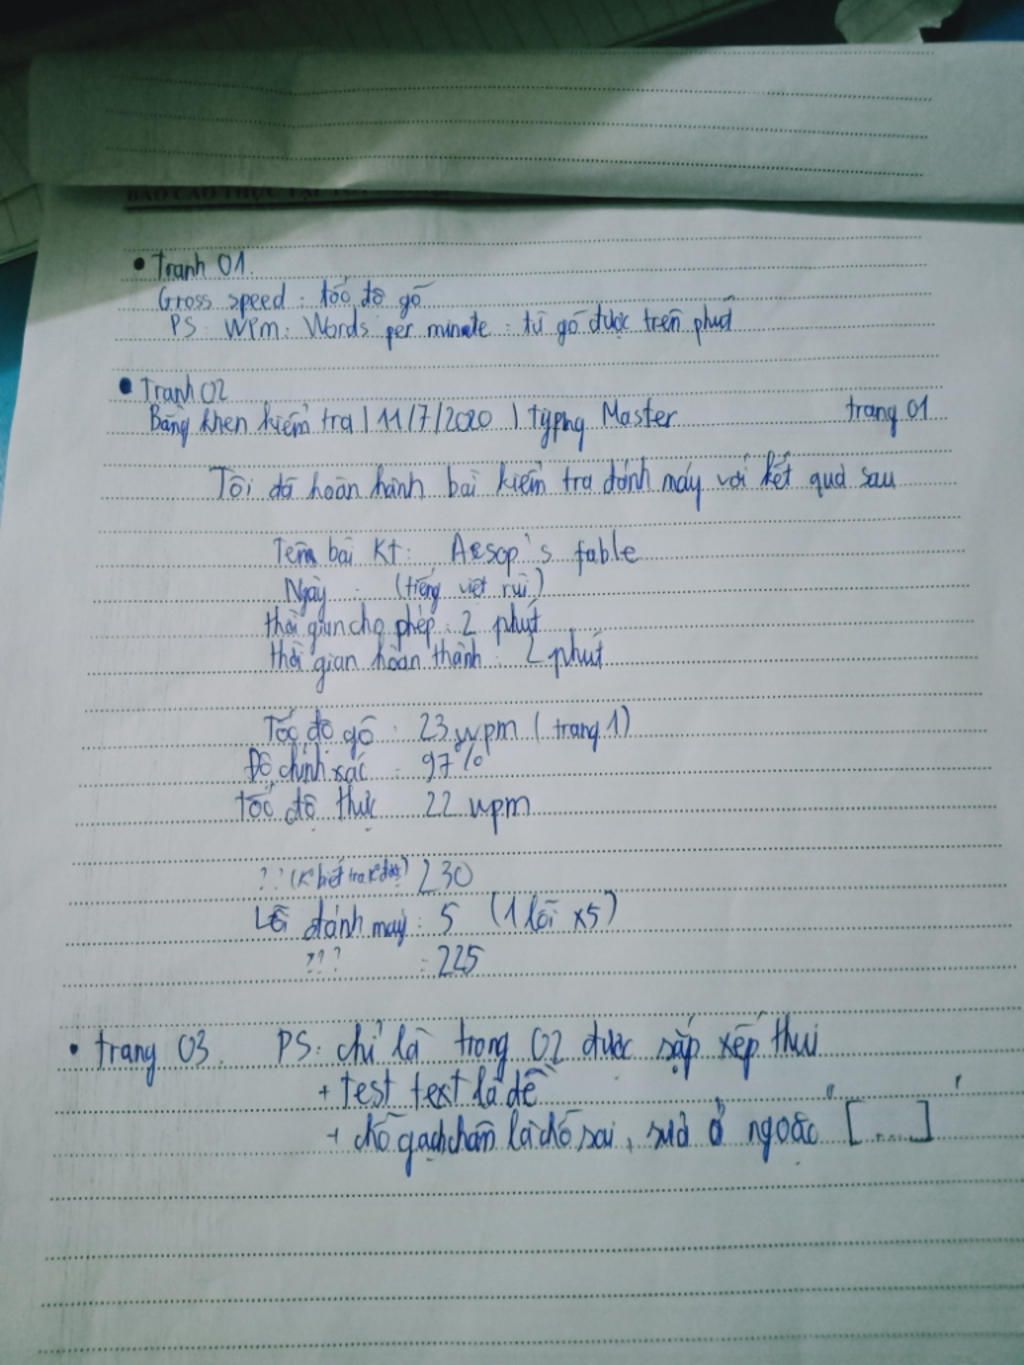 BÁO CÁO THỰC TẬP
• Tranh 01.
Gross speed : tốc độ gõ
PS: WPM: Words per minute : từ gõ được trên phút
• Tranh 02
Bằng khen kiểm tra | 11/7/2020 | typing Master trang 01
Tôi đã hoàn hành bài kiểm tra đánh máy với kết quả sau
Tên bài KT: Aesop's fable
Ngày : (tiếng việt rùi)
thời gian cho phép : 2 phút
thời gian hoàn thành : 2 phút
Tốc độ gõ : 23 wpm ( trang 1)
Độ chính xác : 97%
tốc độ thực 22 wpm
?? (K° biết tra K° được) 230
Lỗi đánh máy : 5 (1 lỗi x5)
??? : 225
• trang 03. PS: chỉ là trong 02 được sắp xếp thui
+ test text là đề
+ chỗ gạch chân là chỗ sai, sửa ở ngoặc "[....]"